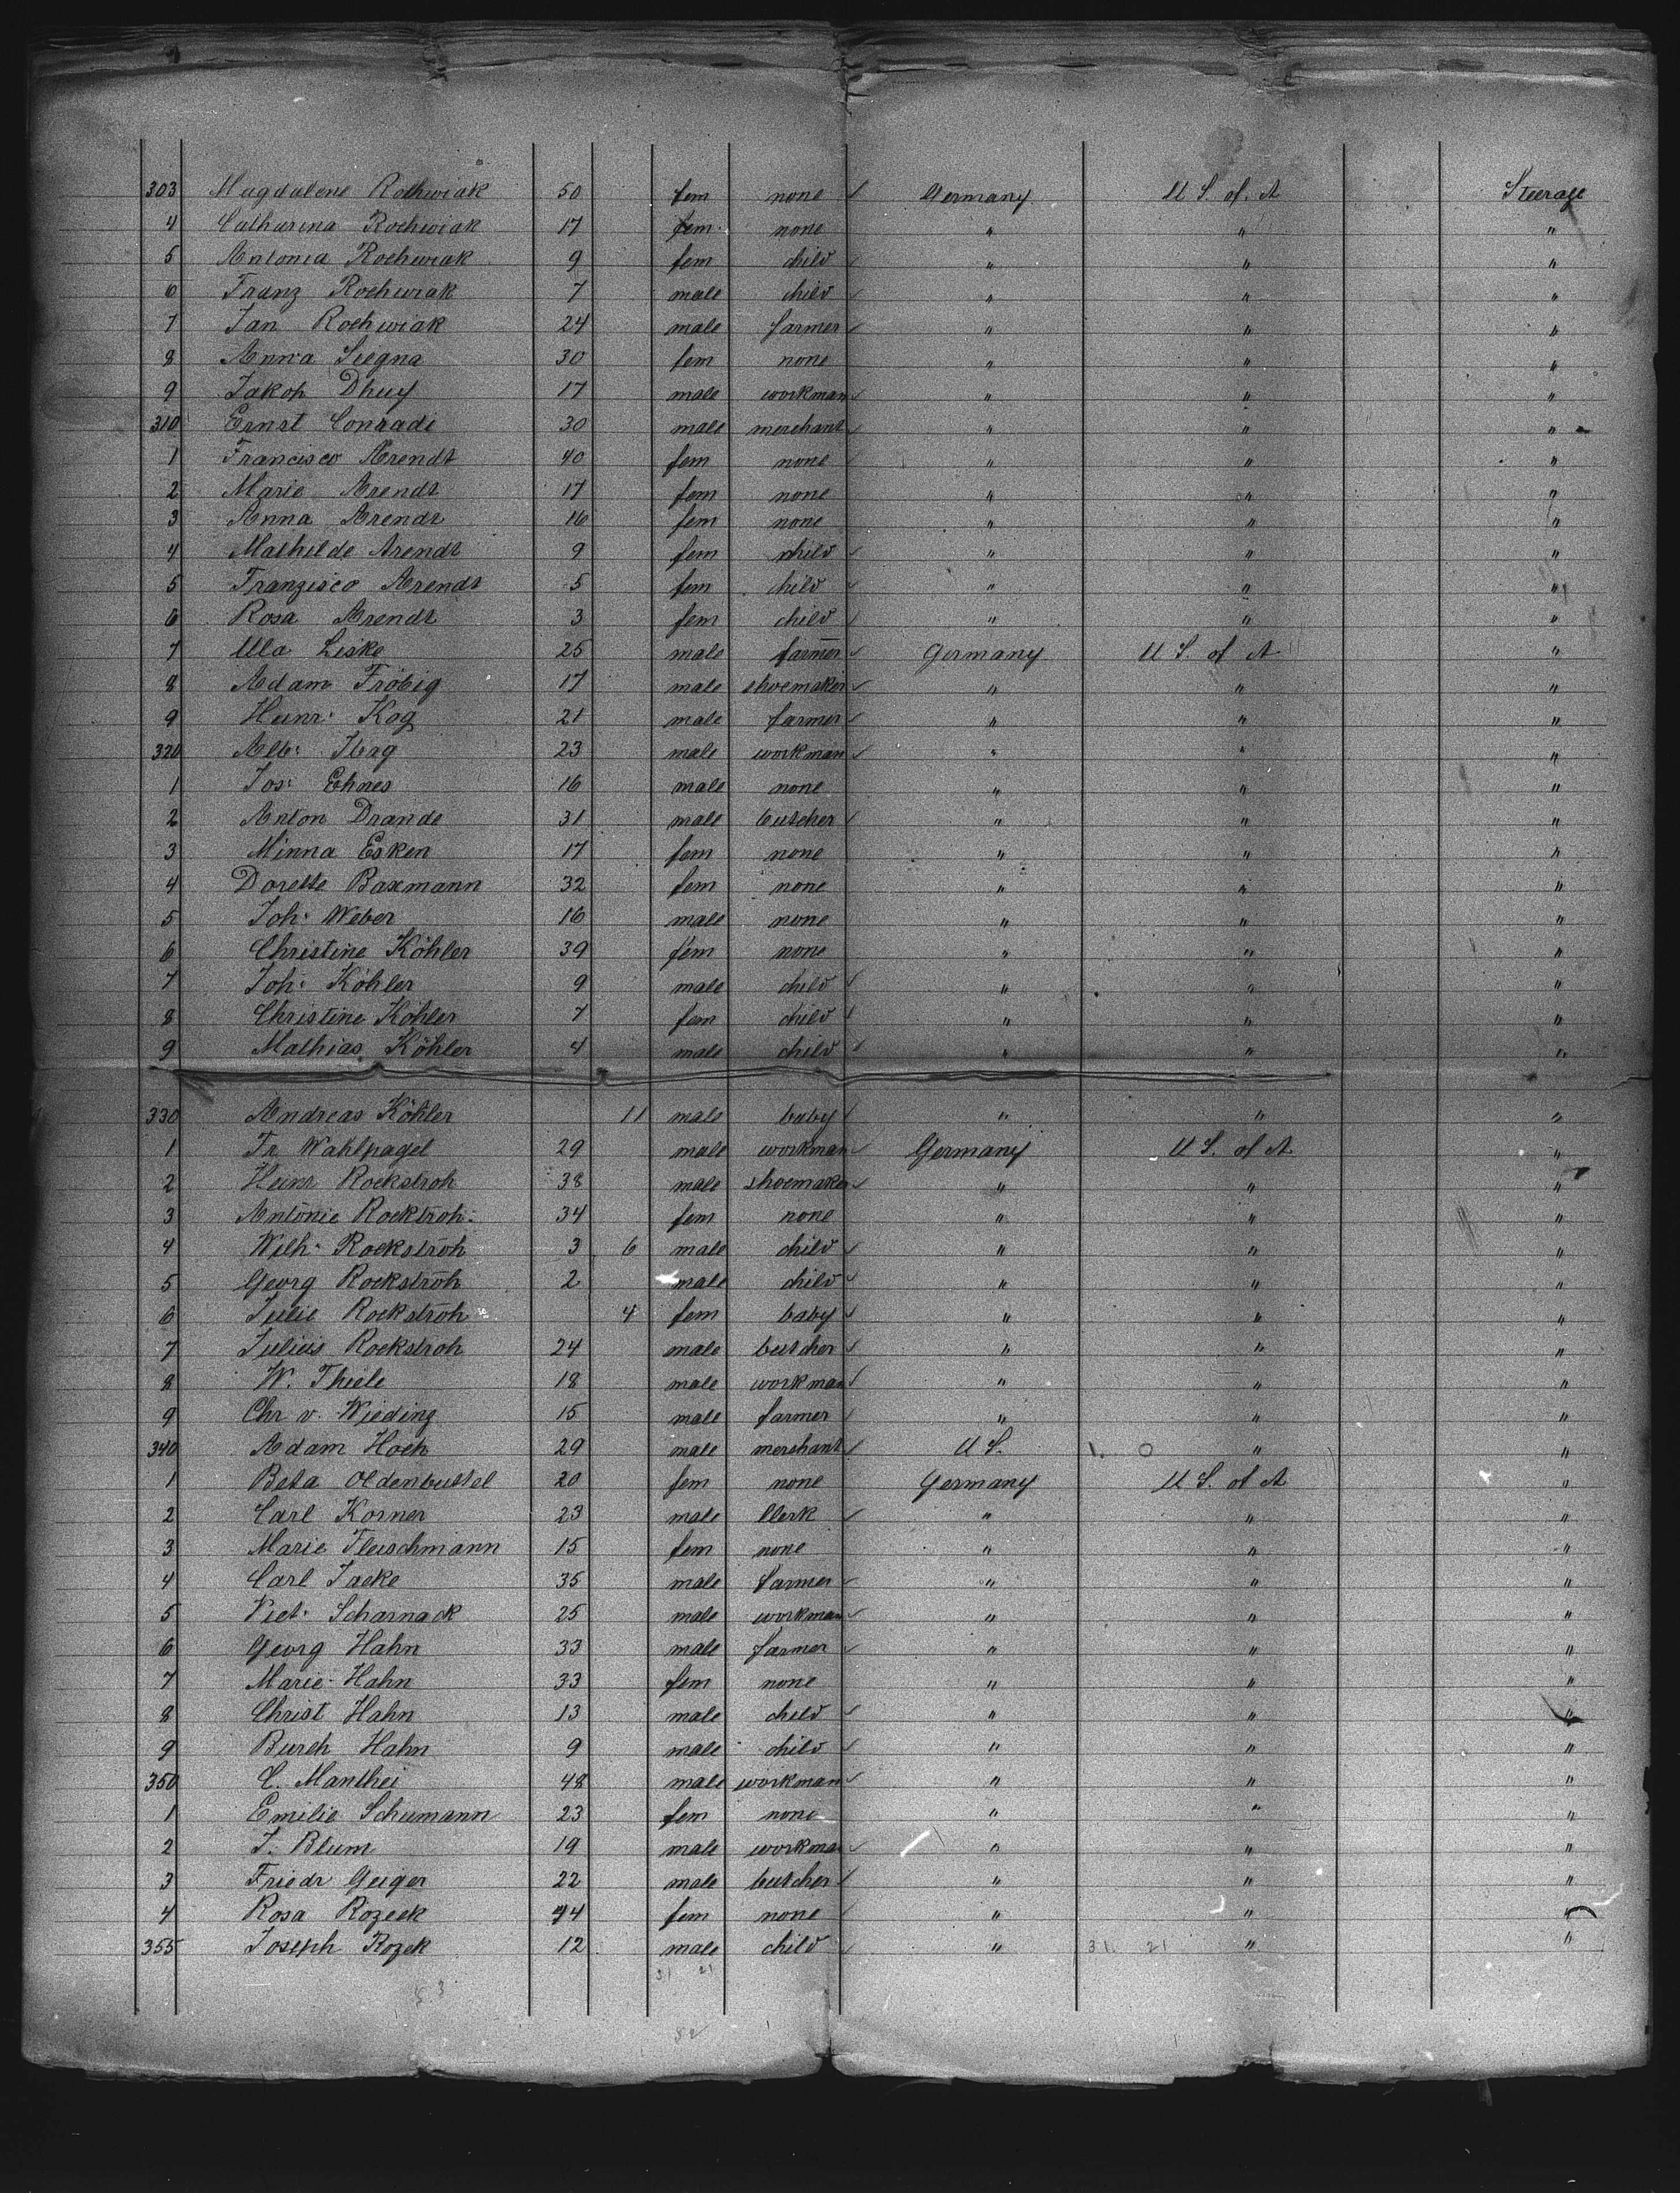 303 Magdalene Rochwiak 50 fem none Germany U S. of A Steerage
4 Catharina Rochwiak 17 fem none " " "
5 Antonia Rochwiak 9 fem child " " "
6 Franz Rochwiak 7 male child " " "
7 Jan Rochwiak 24 male farmer " " "
8 Anna Siegna 30 fem none " " "
9 Jakob Dhuy 17 male workman " " "
310 Ernst Conradi 30 male merchant " " "
1 Francisco Arendt 40 fem none " " "
2 Marie Arendt 17 fem none " " "
3 Anna Arendt 16 fem none " " "
4 Mathilde Arendt 9 fem child " " "
5 Franzisco Arendt 5 fem child " " "
6 Rosa Arendt 3 fem child " " "
7 Liske 25 male farmer Germany U S. of A "
8 Adam Fröbig 17 male shoemaker " " "
9 Heinr. Kog 21 male farmer " " "
320 Alb. 23 male workman " " "
1 Jos. Ehnes 16 male none " " "
2 Anton Drande 31 male butcher " " "
3 Minna Esken 17 fem none " " "
4 Dorette Baxmann 32 fem none " " "
5 Joh. Weber 16 male none " " "
6 Christine Köhler 39 fem none " " "
7 Joh. Köhler 9 male child " " "
8 Christine Köhler 7 fem child " " "
9 Mathias Köhler 4 male child " " "
330 Andreas Köhler 11 male baby " " "
1 Fr. Wahlhagel 29 male workman Germany U S. of A "
2 Heinr Rockstroh 38 male shoemaker " " "
3 Antonie Rocktroh. 34 fem none " " "
4 Wilh. Rockstroh 3 6 male child " " "
5 Georg Rockstroh 2 male child " " "
6 Julie Rockstroh 4 fem baby " " "
7 Julius Rockstroh 24 male butcher " " "
8 W. Thiele 18 male workman " " "
9 Chr v. Wieding 15 male farmer " " "
340 Adam Hoch 29 male merchant U S. 1. 0 " "
1 Beta Oldenbuttel 20 fem none Germany U S. of A "
2 Carl Korner 23 male Clerk " " "
3 Marie Fleischmann 15 fem none " " "
4 Carl Jacke 35 male farmer " " "
5 Vict. Scharnack 25 male workman " " "
6 Georg Hahn 33 male farmer " " "
7 Marie Hahn 33 fem none " " "
8 Christ Hahn 13 male child " " "
9 Burch Hahn 9 male child " " "
350 C. Manthei 48 male workman " " "
1 Emilie Schumann 23 fem none " " "
2 J. Blum 19 male workman " " "
3 Friedr Geiger 22 male butcher " " "
4 Rosa Rozeck 44 fem none " " "
355 Joseph Rozek 12 male child " 31. 21 " "
31 21